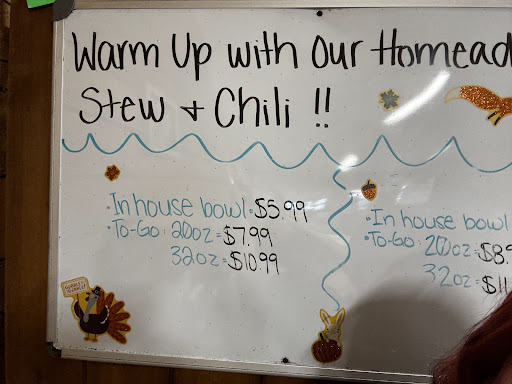 Warm Up with Our Homead
Stew + Chili !!
·In house bowl-$5.99
·To-Go: 20oz-$7.99
32oz-$10.99
·In house bowl
·To-Go: 20oz-$8.
32oz-$1
GOBBLE
GOBBLE!